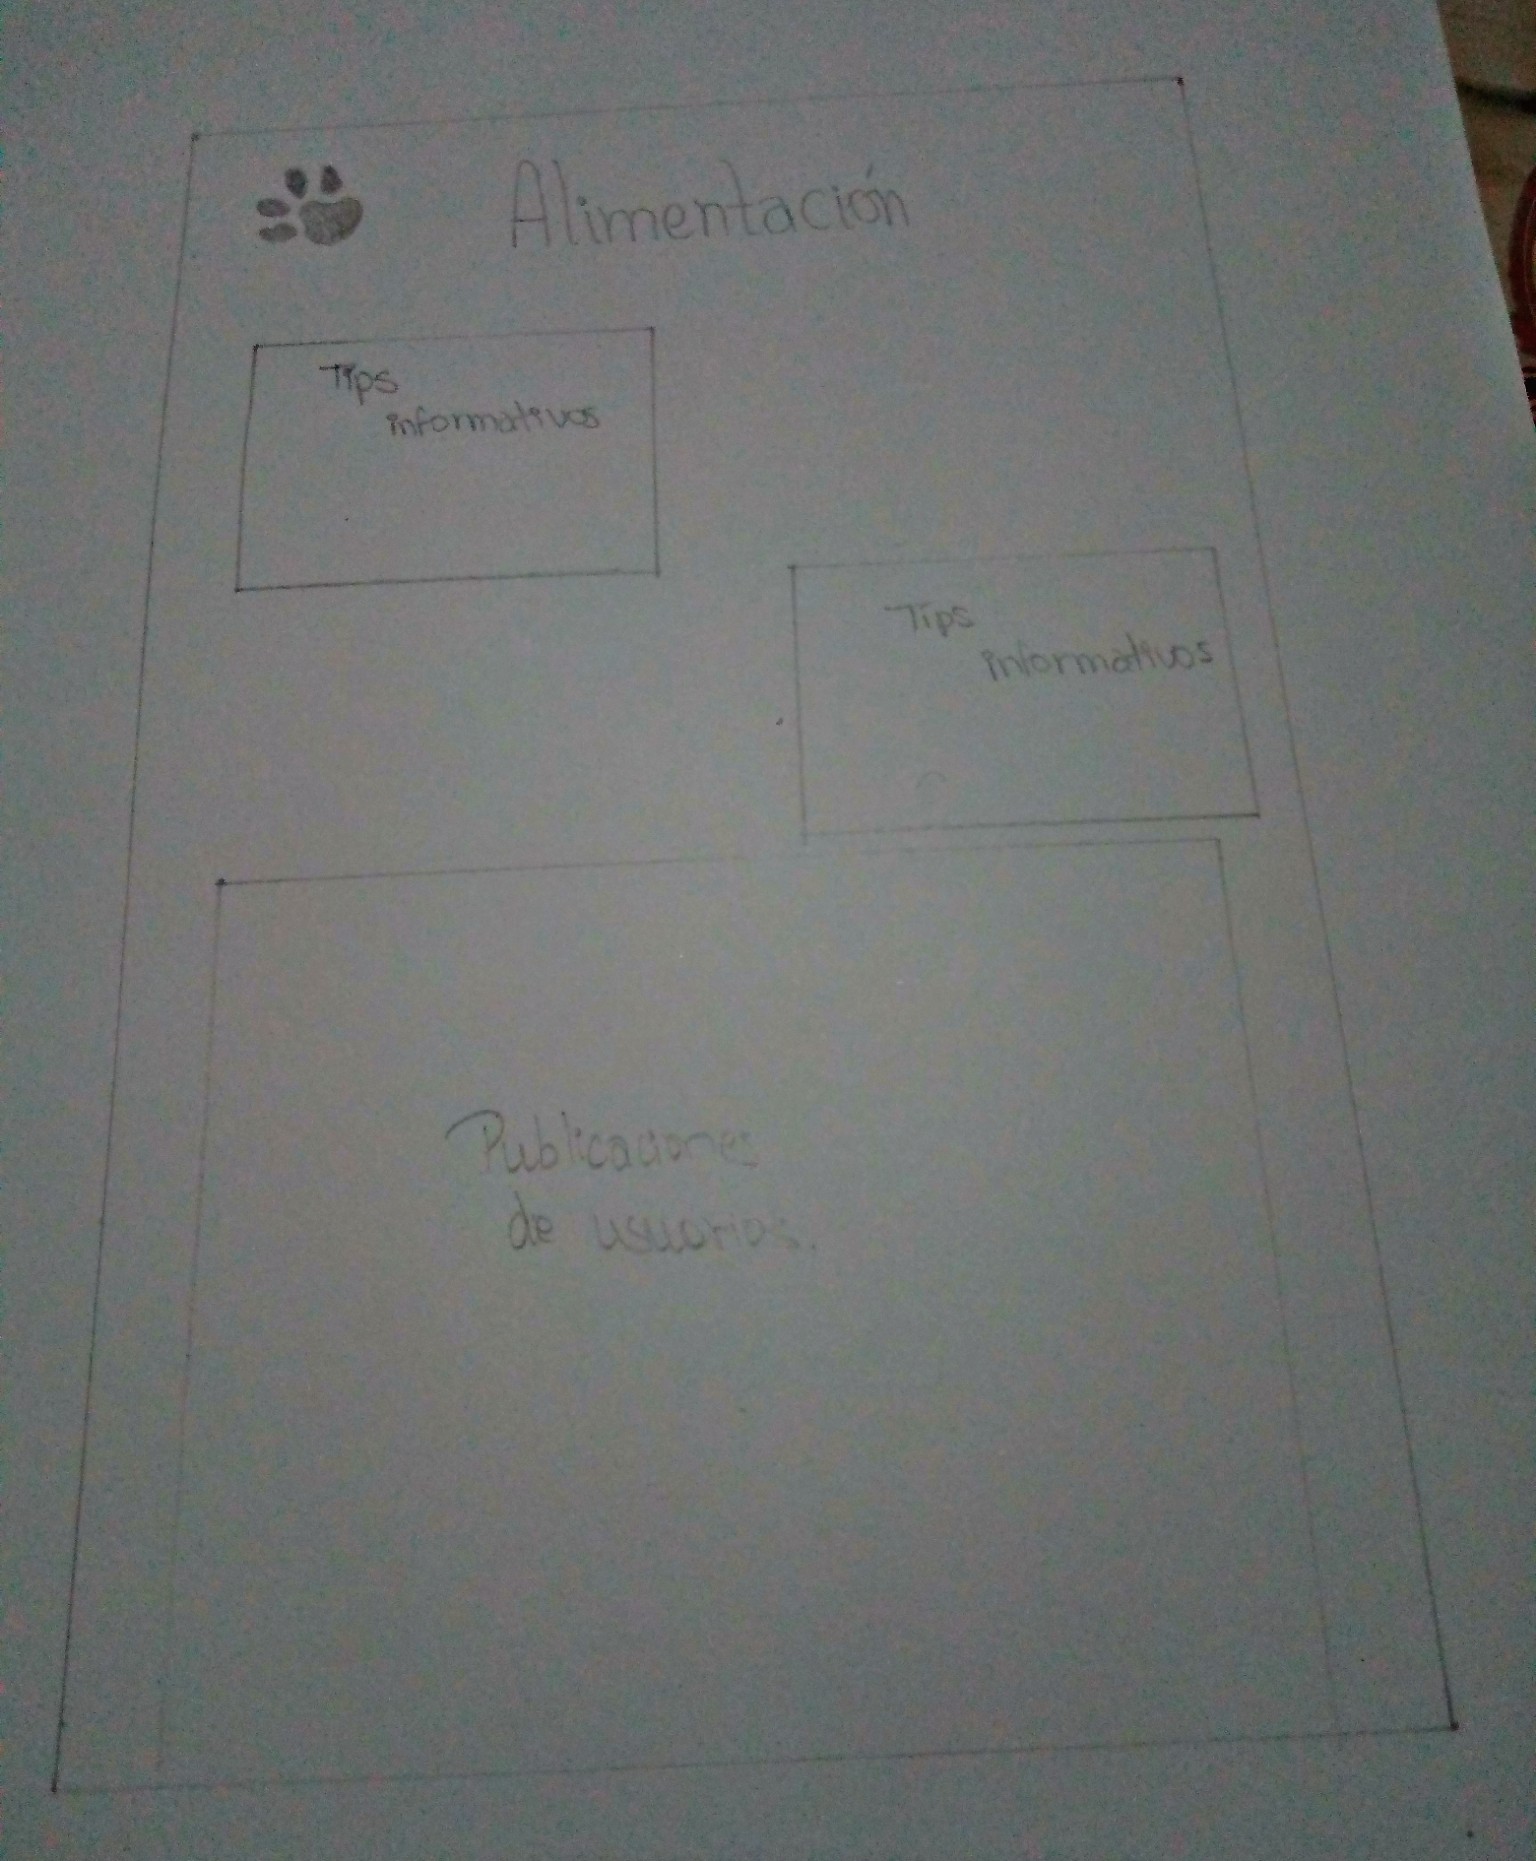 Alimentación
Tips
informativos
Tips
informativos
Publicaciones
de usuarios.